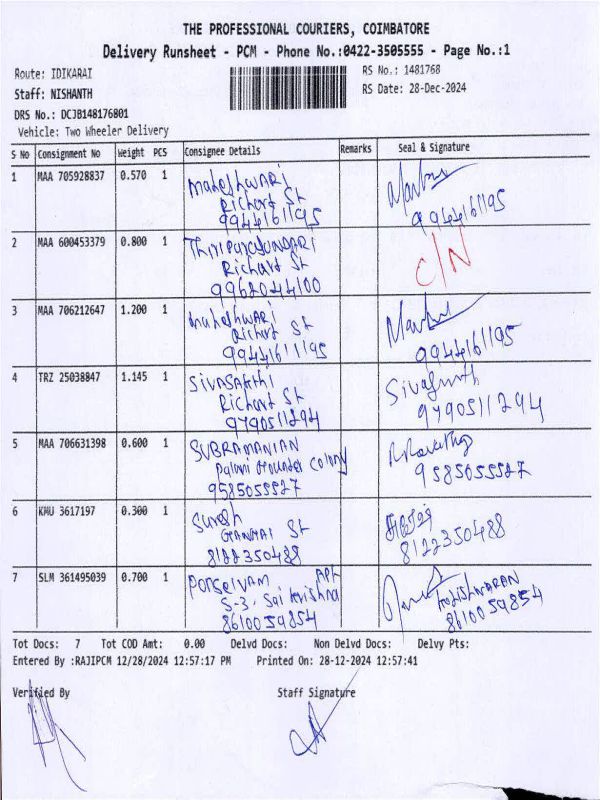 THE PROFESSIONAL COURIERS, COIMBATORE
Delivery Runsheet - PCM - Phone No.:0422-3505555 - Page No.:1
Route: IDIKARAI RS No.: 1481768
Staff: NISHANTH RS Date: 28-Dec-2024
DRS No.: DCJB148176801
Vehicle: Two Wheeler Delivery
S No Consignment No Weight PCS Consignee Details Remarks Seal & Signature
1 MAA 705928837 0.570 1 Maheshwari
Richard St
9944161195 9944161195
2 MAA 600453379 0.800 1 Thiripurasundari C/N
Richard St
9962044100
3 MAA 706212647 1.200 1 Maheshwari
Richard St
9944161195 9944161195
4 TRZ 25038847 1.145 1 SIVASAKTHI
Richard St
9790511294 9790511294
5 MAA 706631398 0.600 1 SUBRAMANIAN
Palani Gounder Colony
9585055527 9585055527
6 KMU 3617197 0.300 1 Suresh
St
8122350488 8122350488
7 SLM 361495039 0.700 1 Ponselvam Apt
S-3, Sai Krishna
8610059854 8610059854
Tot Docs: 7 Tot COD Amt: 0.00 Delvd Docs: Non Delvd Docs: Delvy Pts:
Entered By :RAJIPCM 12/28/2024 12:57:17 PM Printed On: 28-12-2024 12:57:41
Verified By Staff Signature